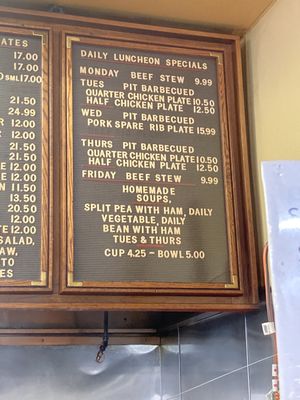 ATES
17.00
17.00
D SML 17.00
21.50
24.99
12.00
12.00
21.50
12.00
12.00
11.50
13.50
20.50
12.00
12.00
SALAD,
AW,
TO
ES
DAILY LUNCHEON SPECIALS
MONDAY BEEF STEW 9.99
TUES PIT BARBECUED
QUARTER CHICKEN PLATE 10.50
HALF CHICKEN PLATE 12.50
WED PIT BARBECUED
PORK SPARE RIB PLATE 15.99
THURS PIT BARBECUED
QUARTER CHICKEN PLATE 10.50
HALF CHICKEN PLATE 12.50
FRIDAY BEEF STEW 9.99
HOMEMADE
SOUPS,
SPLIT PEA WITH HAM, DAILY
VEGETABLE, DAILY
BEAN WITH HAM
TUES & THURS
CUP 4.25 - BOWL 5.00